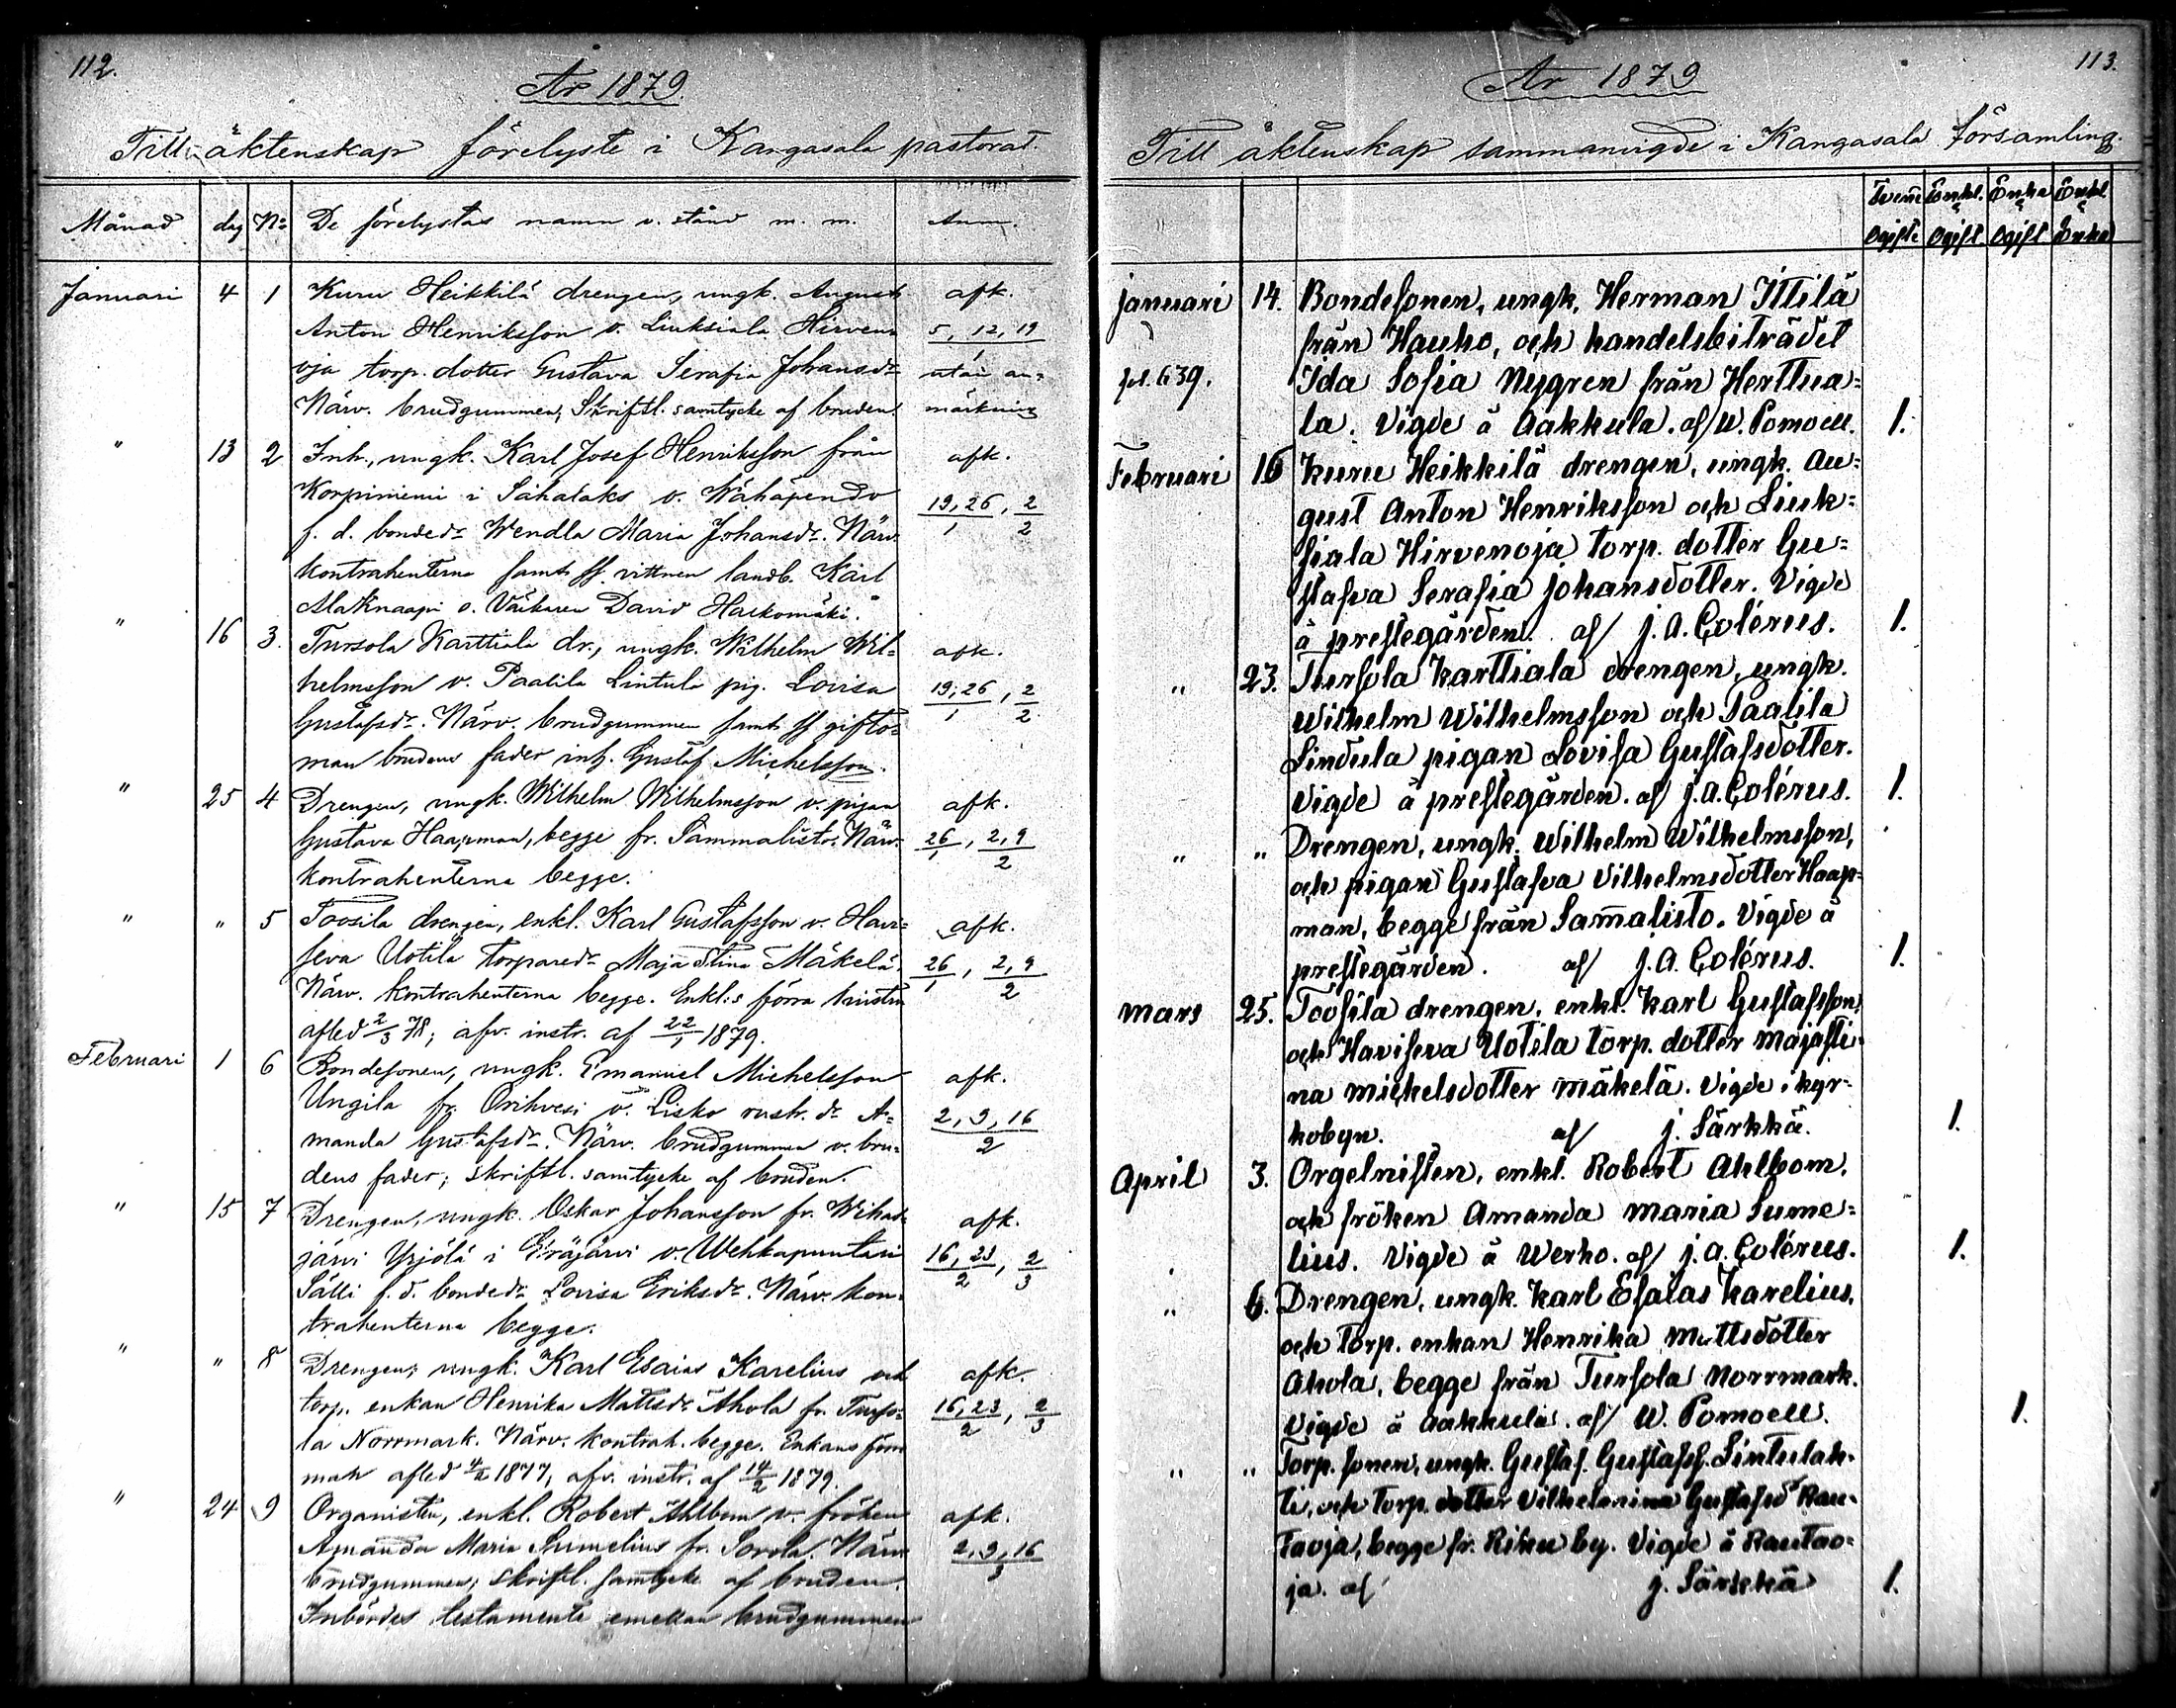 112.
År 1879.
Till äktenskap förelyste i Kangasala pastorat.
Månad dag No De förelystas namn o. stånd m. m. Anm.
Januari 4 1 Kuru Heikkilä drengen, ungk. August afk.
Anton Henriksson o. Liuksiala Hirven= 5, 12, 19
oja torp. dotter Gustava Serafia Johansdr 1 utan an=
Närv. brudgummen, Skriftl. samtycke af bruden. märkning
" 13 2 Inh., ungk. Karl Josef Henriksson från afk.
Korpiniemi i Sahalaks o. 19, 26, 2
f. d. bondedr Wendla Maria Johansdr. Närv. 1 2
kontrahenterna samt ss. vittnen landb. Karl
AlaKnaapi o. David Haskomäki.
" 16 3. Tursola Karttiala dr., ungk. Wilhelm Wil= afk.
helmsson o. Paalila Lintula pig. Lovisa 19, 26, 2
Gustafsdr. Närv. brudgummen samt ss gifto= 1 2
man brudens fader inh. Gustaf Michelsson.
" 25 4 Drengen, ungk. Wilhelm Wilhelmsson o. pigan afk.
Gustava Haapman, begge fr. Sammalisto. Närv. 26, 2, 9
kontrahenterna begge. 1 2
" " 5 Toosila drengen, enkl. Karl Gustafsson o. Havi= afk.
seva Uotila torparedr Maja Stina Mäkelä. 26, 2, 9
Närv. kontrahenterna begge. Enkl:s förra hustru 1 2
afled 2/3 78; afv. instr. af 22/1 1879.
Februari 1 6 Bondesonen, ungk. Emanuel Michelsson afk.
Ungila fr. Orihvesi o. Lisko rustr. dr A= 2, 9, 16
manda Gustafsdr. Närv. brudgummen o. bru= 2
dens fader; skriftl. samtycke af bruden.
" 15 7 Drengen, ungk. Oskar Johansson fr. Wihas= afk.
järvi Yrjölä i Eräjärvi o. Wehkapuntari 16, 23, 2
Sälli f. d. bondedr Lovisa Eriksdr. Närv. kon= 2 3
trahenterna begge.
" " 8 Drengen, ungk. Karl Esaias Karelius och afk.
torp. enkan Henrika Mattsdr Ahola fr. Turso= 16, 23, 2
la Norrmark. Närv. kontrah. begge. Enkans förra 2 3
man afled 1877, afv. instr. af 14/2 1879.
" 24 9 Organisten, enkl. Robert Ahlbom o. fröken afk.
Amanda Maria Sumelius fr. Sorola. Närv. 2, 9, 16
brudgummen; skriftl. samtycke af bruden. 3
Inbördes testamente emellan brudgummen
113.
År 1879
Till äktenskap sammanvigde i Kangasala församling.
Tvenne Enkl. Enka Enkl
o o o
Ogifte Ogift Ogift Enka
Januari 14. Bondesonen, ungk, Herman Ittilä
från Hauho, och handelsbiträdet
pl. 639. Ida Sofia Nygren från Herttua=
la. Vigde å Aakkula. af W. Pomoell. 1.
Februari 16 Kuru Heikkilä drengen, ungk. Au=
gust Anton Henriksson och Liuk=
siala Hirvenoja torp. dotter Gu=
stafva Serafia Johansdotter. Vigde
å prestegården. af J. A. Colérus. 1.
" 23. Tursola Karttiala drengen, ungk.
Wilhelm Wilhelmsson och Paalila
Lindula pigan Lovisa Gustafsdotter.
Vigde å prestegården. af J. A. Colérus. 1.
" " Drengen, ungk. Wilhelm Wilhelmsson,
och pigan Gustafva Vilhelmsdotter Haap=
man, begge från Sam̄alisto. Vigde å
prestegården. af J. A. Colérus. 1.
Mars 25. Toosila drengen, enkl. Karl Gustafsson,
och Haviseva Uotila torp. dotter Majasti=
na Michelsdotter Mäkelä. Vigde i kyr=
kobyn. af J. Särkkä. 1.
April 3. Orgelnisten, enkl. Robert Ahlbom,
och fröken Amanda Maria Sume=
lius. Vigde å Werho. af J. A. Colérus. 1.
" 6. Drengen, ungk. Karl Esaias Karelius,
och torp. enkan Henrika Mattsdotter
Ahola, begge från Tursola Norrmark.
Vigde å Aakkula. af W. Pomoell. 1.
" " Torp. sonen, ungk. Gustaf Gustafss. Lintulah=
ti, och torp. dotter Vilhelmina Gustafsd Rau=
taoja, begge fr. Riku by. Vigde å Rautao=
ja. af J. Särkkä 1.